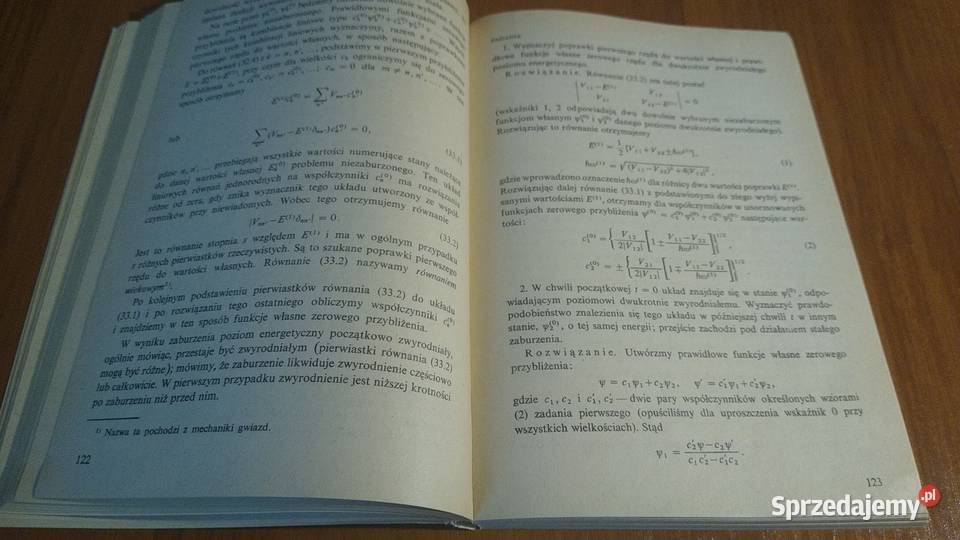 Na razie przez
własne problemu niezaburzonego. Prawidłowymi funkcjami
przybliżenia są kombinacje liniowe typu
tych kombinacji liniowych wyznaczymy, razem z poprawką
pierwszego rzędu do wartości własnych, w sposób następujący.
podstawimy w pierwszym przybliżeniu
przy czym dla wielkości cₖ ograniczymy się do zerowego
dla m ≠ n, n′, ...
sposób otrzymamy
lub
(33.1)
gdzie n, n′, ... przebiegają wszystkie wartości numerujące stany należące
do danej wartości własnej Eₙ⁽⁰⁾ problemu niezaburzonego. Ten układ
liniowych równań jednorodnych na współczynniki cₙ⁽⁰⁾ ma rozwiązania
różne od zera, gdy znika wyznacznik tego układu utworzony ze współ-
czynników przy niewiadomych. Wobec tego otrzymujemy równanie
|Vₙₙ′ − E⁽¹⁾δₙₙ′| = 0. (33.2)
Jest to równanie stopnia s względem E⁽¹⁾ i ma w ogólnym przypadku
s różnych pierwiastków rzeczywistych. Są to szukane poprawki pierwszego
rzędu do wartości własnych. Równanie (33.2) nazywamy równaniem
wiekowym¹⁾.
Po kolejnym podstawieniu pierwiastków równania (33.2) do układu
(33.1) i po rozwiązaniu tego ostatniego obliczymy współczynniki cₙ⁽⁰⁾
i znajdziemy w ten sposób funkcje własne zerowego przybliżenia.
W wyniku zaburzenia poziom energetyczny początkowo zwyrodniały,
ogólnie mówiąc, przestaje być zwyrodniałym (pierwiastki równania (33.2)
mogą być różne); mówimy, że zaburzenie likwiduje zwyrodnienie częściowo
lub całkowicie. W pierwszym przypadku zwyrodnienie jest niższej krotności
po zaburzeniu niż przed nim.
¹⁾ Nazwa ta pochodzi z mechaniki gwiazd.
122
Zadania
1. Wyznaczyć poprawki pierwszego rzędu do wartości własnej i prawi-
dłowe funkcje własne zerowego rzędu dla dwukrotnie zwyrodniałego
poziomu energetycznego.
Rozwiązanie. Równanie (33.2) ma tutaj postać
| V₁₁−E⁽¹⁾ V₁₂ |
| V₂₁ V₂₂−E⁽¹⁾ | = 0
(wskaźniki 1, 2 odpowiadają dwu dowolnie wybranym niezaburzonym
funkcjom własnym ψ₁⁽⁰⁾ i ψ₂⁽⁰⁾ danego poziomu dwukrotnie zwyrodniałego).
Rozwiązując to równanie otrzymujemy
E⁽¹⁾ = ½[V₁₁+V₂₂±ħω⁽¹⁾],
ħω⁽¹⁾ = √((V₁₁−V₂₂)²+4|V₁₂|²), (1)
gdzie wprowadzono oznaczenie ħω⁽¹⁾ dla różnicy dwu wartości poprawki E⁽¹⁾.
Rozwiązując dalej równanie (33.1) z podstawionymi do niego wyżej wypi-
sanymi wartościami E⁽¹⁾, otrzymamy dla współczynników w unormowanych
funkcjach zerowego przybliżenia ψ⁽⁰⁾ = c₁⁽⁰⁾ψ₁⁽⁰⁾+c₂⁽⁰⁾ψ₂⁽⁰⁾ następujące war-
tości:
c₁⁽⁰⁾ = {V₁₂/2|V₁₂| [1 ± (V₁₁−V₂₂)/ħω⁽¹⁾]}^1/2, (2)
c₂⁽⁰⁾ = ± {V₂₁/2|V₁₂| [1 ∓ (V₁₁−V₂₂)/ħω⁽¹⁾]}^1/2
2. W chwili początkowej t = 0 układ znajduje się w stanie ψ₁⁽⁰⁾, odpo-
wiadającym poziomowi dwukrotnie zwyrodniałemu. Wyznaczyć prawdo-
podobieństwo znalezienia się tego układu w późniejszej chwili t w innym
stanie, ψ₂⁽⁰⁾, o tej samej energii; przejście zachodzi pod działaniem stałego
zaburzenia.
Rozwiązanie. Utwórzmy prawidłowe funkcje własne zerowego
przybliżenia:
ψ = c₁ψ₁+c₂ψ₂, ψ′ = c₁′ψ₁+c₂′ψ₂,
gdzie c₁, c₂ i c₁′, c₂′ — dwie pary współczynników określonych wzorami
(2) zadania pierwszego (opuściliśmy dla uproszczenia wskaźnik 0 przy
wszystkich wielkościach). Stąd
ψ₁ = (c₂′ψ−c₂ψ′)/(c₁c₂′−c₁′c₂).
123
Sprzedajemy.pl